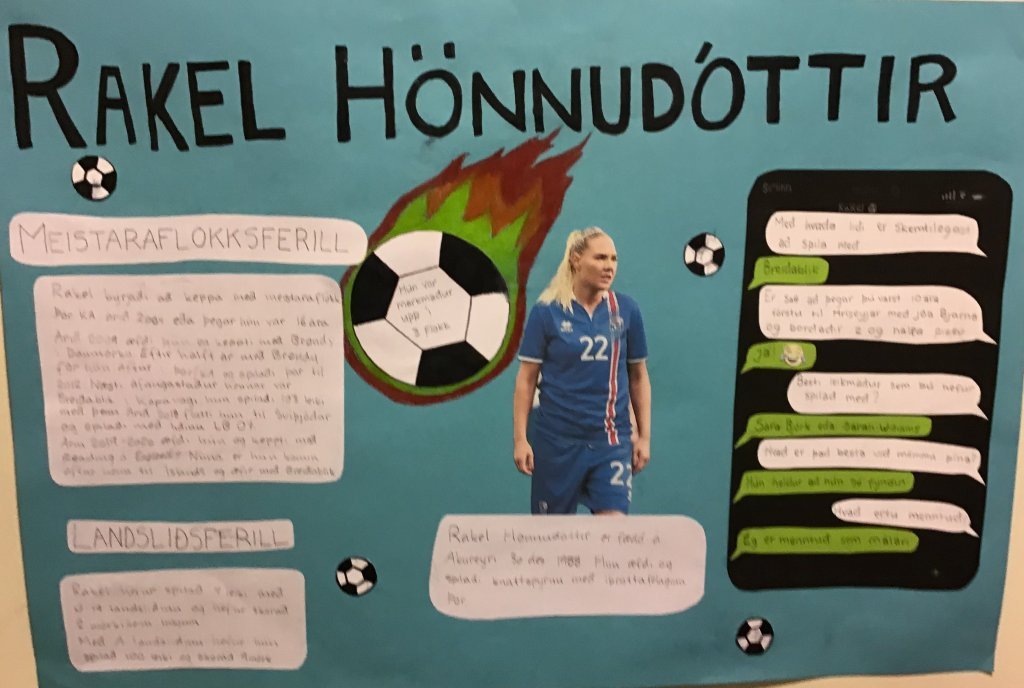 RAKEL HÖNNUDÓTTIR
MEISTARAFLOKKSFERILL
Rakel byrjaði að keppa með meistaraflokk
Þór KA árið 2004 eða þegar hún var 16 ára
Árið 2009 æfði hún og keppti með Brøndby
í Danmörku Eftir hálft ár með Brøndby
fór hún aftur og spilaði þar til
2012 Næsti áfangastaður hennar var
Breiðablik í Kópavogi hún spilaði leiki
með þeim Árið 2018 flutti hún til Svíþjóðar
og spilaði með liðinu LB 07.
Árin 2019-2020 æfði hún og keppti með
Reading í Núna er hún komin
aftur heim til Íslands og æfir með Breiðablik
LANDSLIÐSFERILL
Rakel hefur spilað leiki með
landsliðinu og hefur skorað
2 mörk
Með A landsliðinu hefur hún
spilað 100 leiki og skorað 9 mörk
Hún var
markmaður
upp í
3 flokk
22
22
Rakel Hönnudóttir er fædd á
Akureyri 30 des 1988 Hún æfði og
spilaði knattspyrnu með íþróttafélaginu
Þór
Með hvaða liði er skemtilegast
að spila með
Breiðablik
Er það að þegar þú varst 10 ára
fórstu til Hríseyjar með Jóa Bjarna
og borðaðir 2 og hálfa pizzu
Já! 😂
Besti leikmaður sem þú hefur
spilað með?
Sara Björk eða
Hvað er það besta við mömmu þína?
Hún heldur að hún sé fyndin
Hvað ertu menntuð
Ég er menntuð sem málari